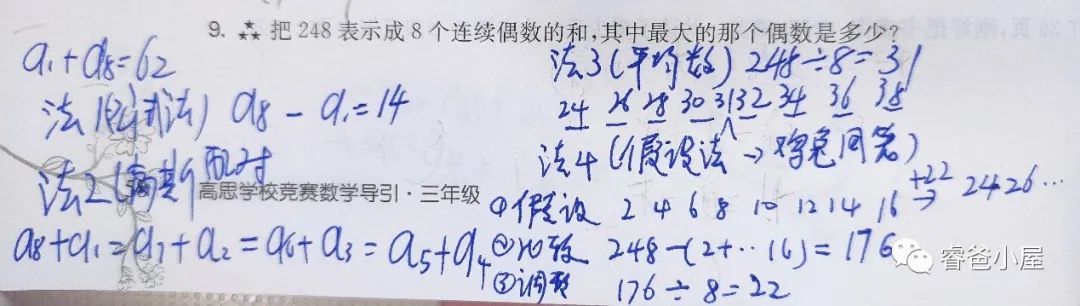 9. 把 248 表示成 8 个连续偶数的和,其中最大的那个偶数是多少?
a₁+a₈=62
法1(公式法) a₈-a₁=14
法2(高斯配对
高思学校竞赛数学导引·三年级
a₈+a₁=a₇+a₂=a₆+a₃=a₅+a₄
法3(平均数) 248÷8=31
24 26 28 30 31 32 34 36 38
法4(假设法→鸡兔同笼)
①假设 2 4 6 8 10 12 14 16 +22→ 24 26…
②比较 248-(2+··16)=176
③调整 176÷8=22
睿爸小屋